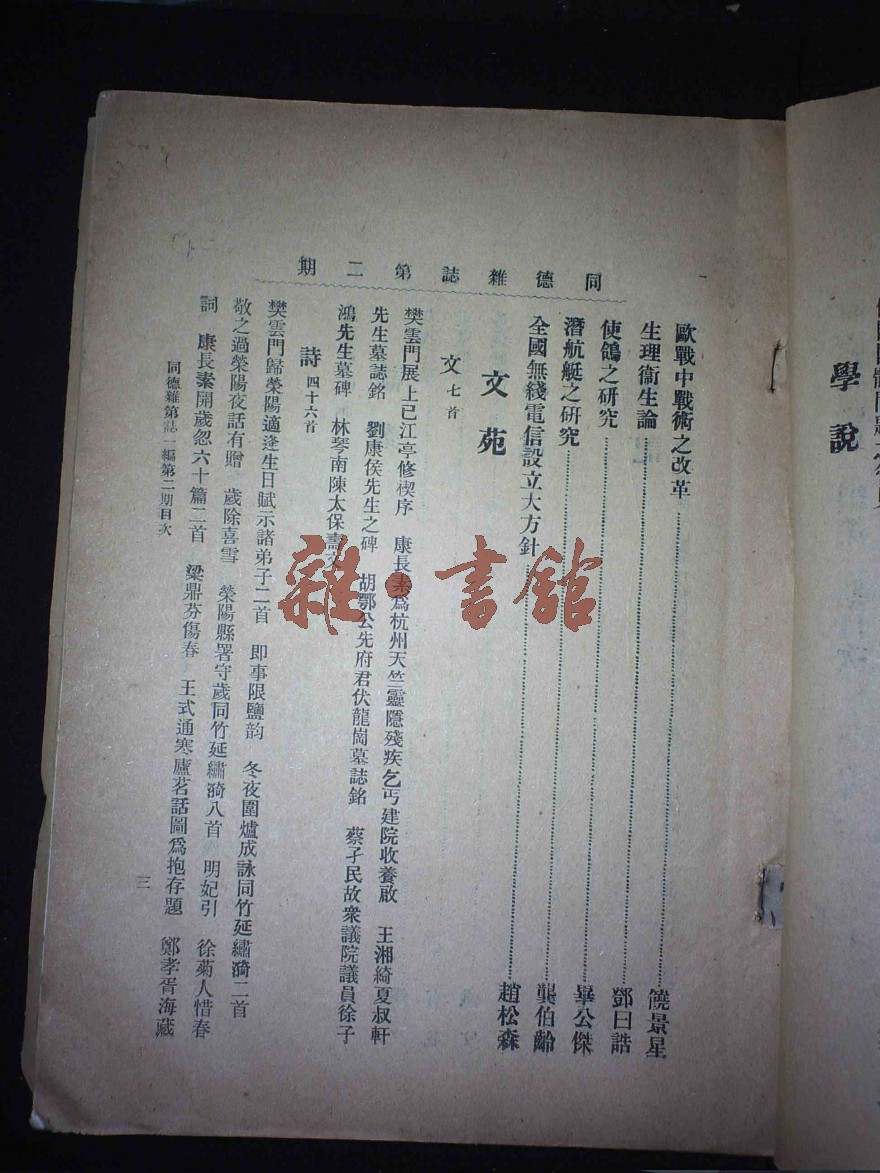 同德雜誌第二期
歐戰中戰術之改革 饒景星
生理衞生論 鄧曰誥
使鴿之研究 畢公傑
潛航艇之研究 龔伯齡
全國無綫電信設立大方針 趙松森
文苑
文 七首
樊雲門展上巳江亭修禊序 康長素爲杭州天竺靈隱殘疾乞丐建院收養啟 王湘綺夏叔軒
先生墓誌銘 劉康侯先生之碑 胡鄂公先府君伏龍崗墓誌銘 蔡孑民故衆議院議員徐子
鴻先生墓碑 林琴南陳太保壽文
詩 四十六首
樊雲門歸滎陽適逢生日賦示諸弟子二首 即事限鹽韵 冬夜圍爐成詠同竹延繡漪二首
敬之過滎陽夜話有贈 歲除喜雪 滎陽縣署守歲同竹延繡漪八首 明妃引 徐菊人惜春
詞 康長素開歲忽六十篇二首 梁鼎芬傷春 王式通寒廬茗話圖爲抱存題 鄭孝胥海藏
同德雜第誌一編第二期目次
三
學說
雜·書館